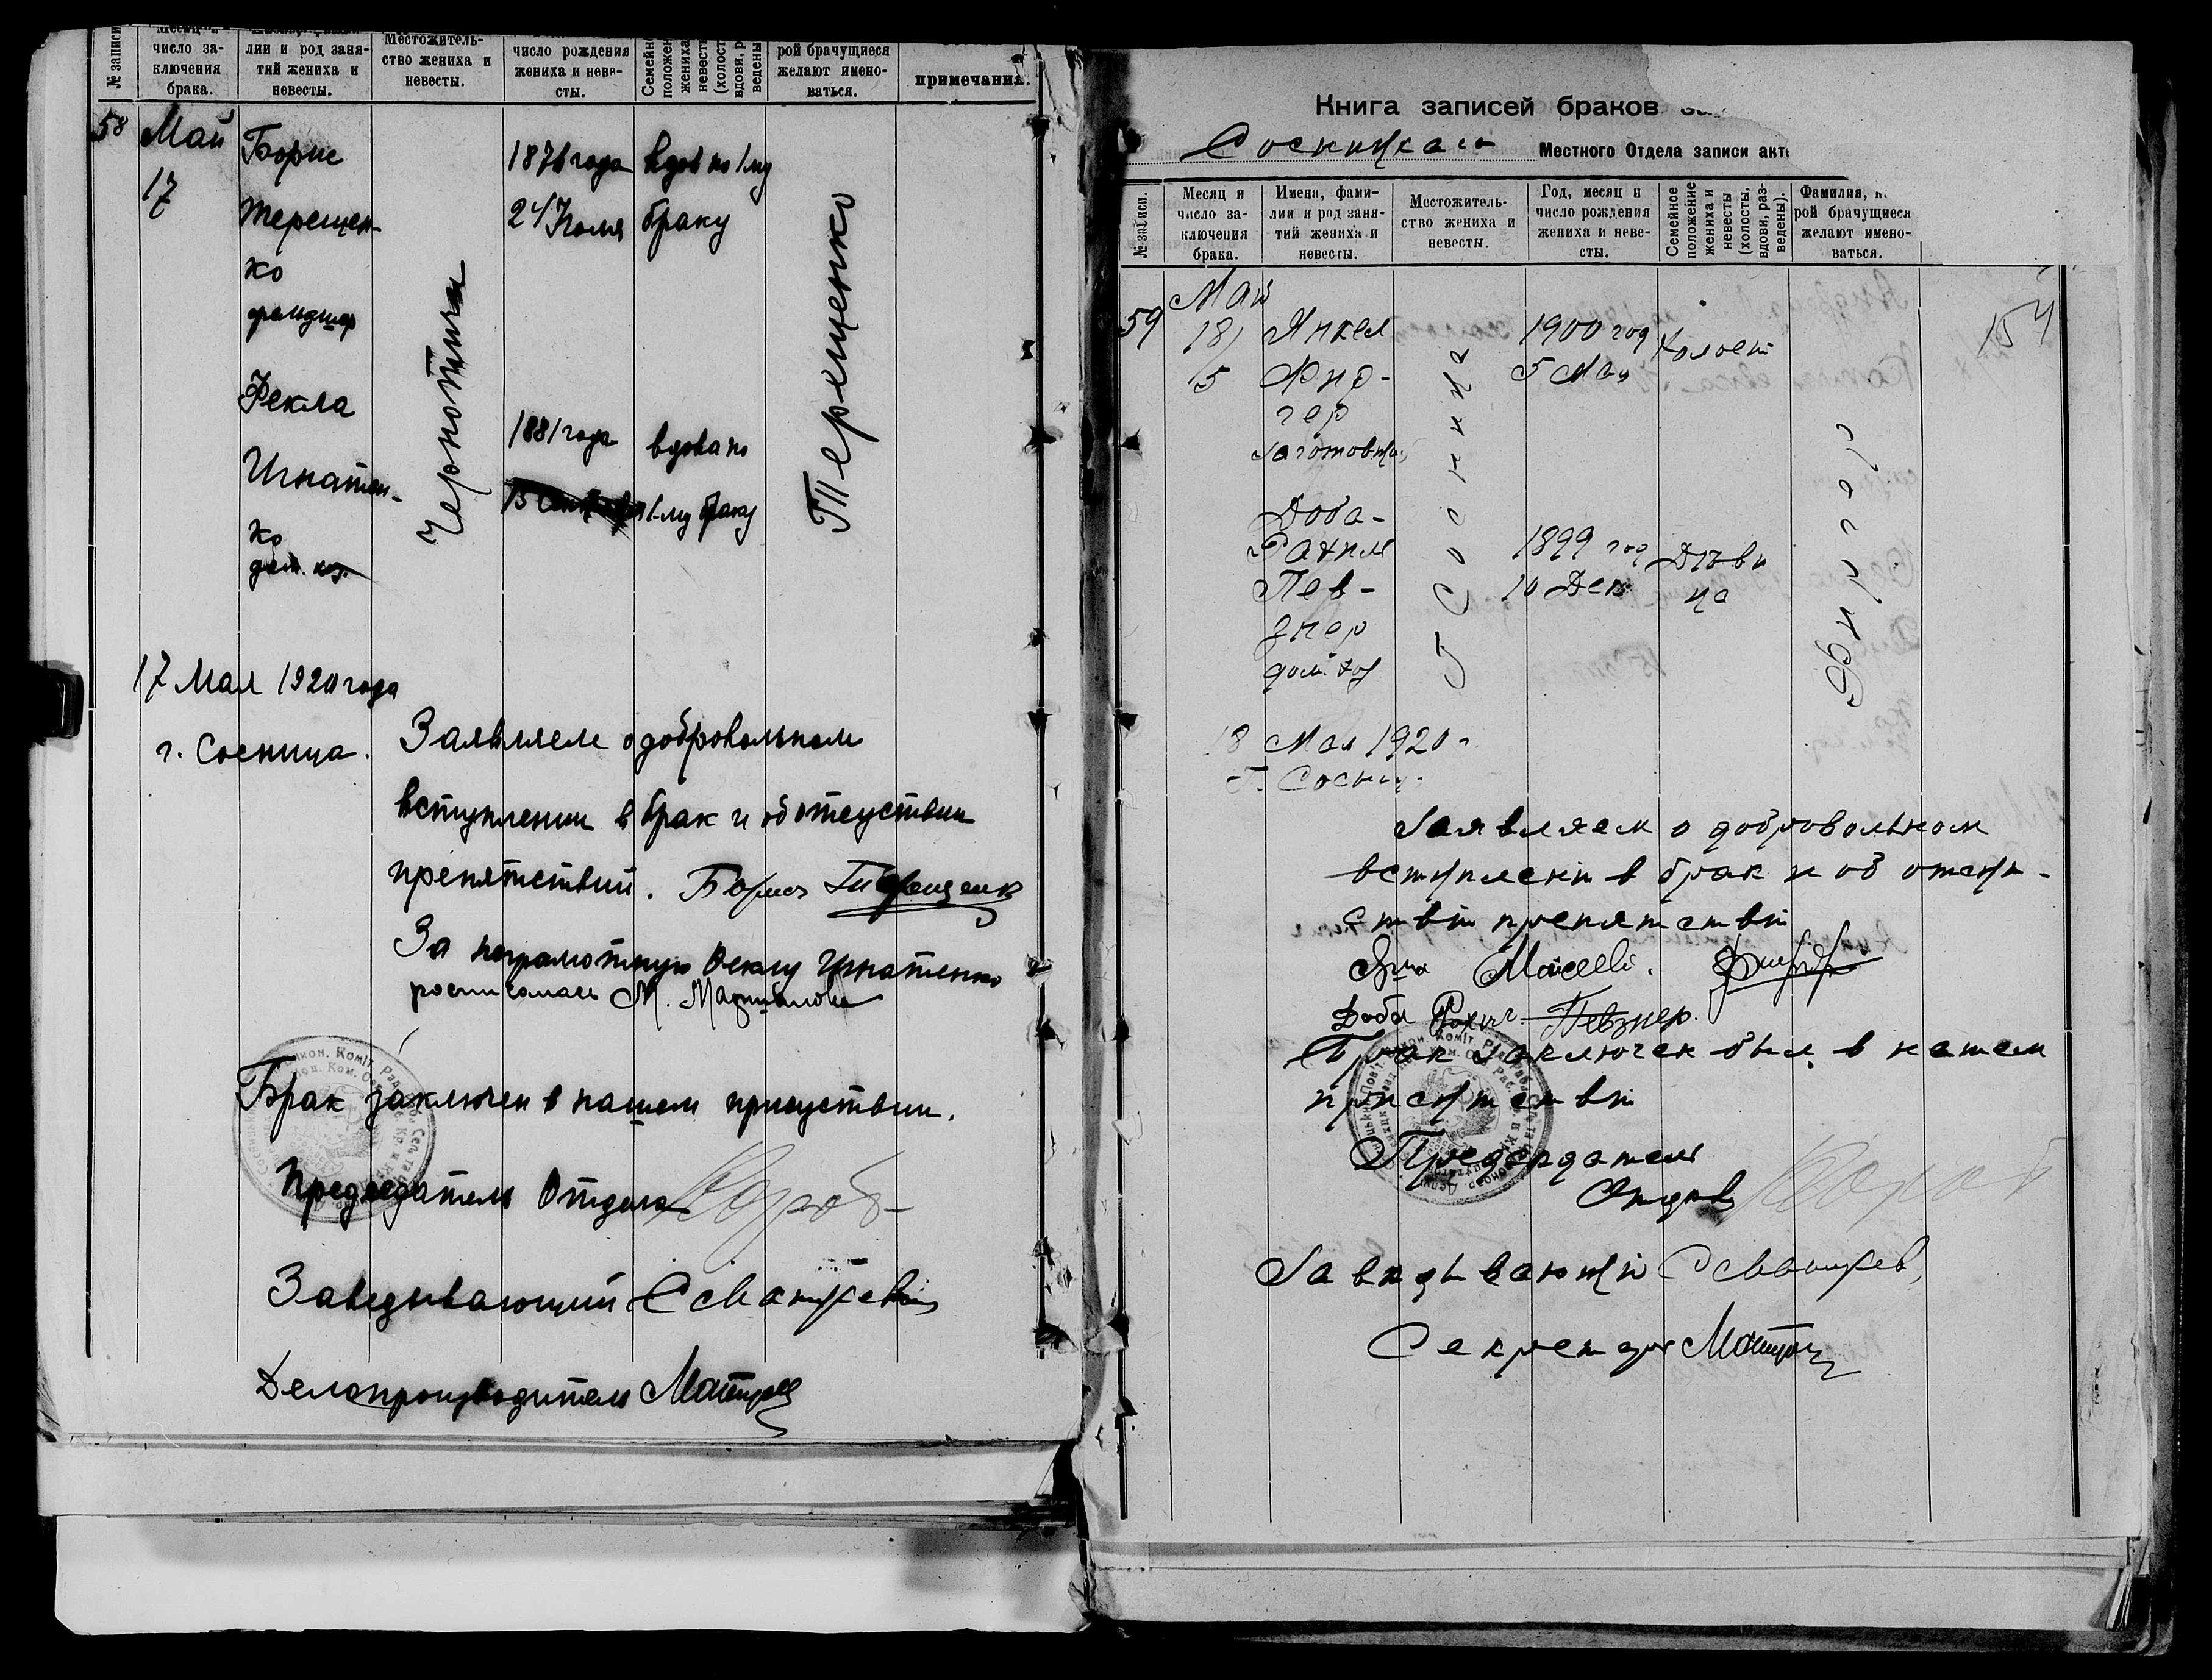 № записи
Месяц и
число за-
ключения
брака.
лии и род заня-
тий жениха и
невесты.
Местожитель-
ство жениха и
невесты.
число рождения
жениха и неве-
сты.
Семейно
положен
жениха
невест
(холост
вдови, р
ведены
рой брачущиеся
желают имено-
ваться.
примечания.
58
Май
17
Борис
Терещен-
ко
Фекла
Игнатен-
ко
Чернотичи
1876 года
24 Июля
1881 года
вдов по 1му
браку
вдова по
1-му браку
Терещенко
17 Мая 1920 года
г. Сосница.
Заявляем о добровольном
вступлении в брак и об отсуствии
препятствий. Борис Терещенк
За неграмотную Феклу Игнатенко
Брак заключен в нашем присуствии.
Председатель Отдела
Заведывающий
Делопроизводитель
Книга записей браков за
Сосницкаго Местного Отдела записи акт
№ записи.
Месяц и
число за-
ключения
брака.
Имена, фами-
лии и род заня-
тий жениха и
невесты.
Местожитель-
ство жениха и
невесты.
Год, месяц и
число рождения
жениха и неве-
сты.
Семейное
положение
жениха и
невесты
(холосты,
вдови, раз-
ведены).
Фамилия, к
рой брачущиеся
желают имено-
ваться.
154
59
Май
18/
5
Янкел
Фид-
гер
Заготовщ.
Доба-
Рахиль
Пев-
знер
дом. хоз
Г Сосница
1900 год
5 Мая
1899 год
10 Дек
Холост
Дѣви
ца
18 Мая 1920 г
Г. Сосниц.
Заявляем о добровольном
вступлении в брак и об отсут-
ствіи препятствій
Доба Рохил. Певзнер.
Брак заключен был в нашем
присутствіи
Председатель
Отдела
Завѣдывающій
Секретар